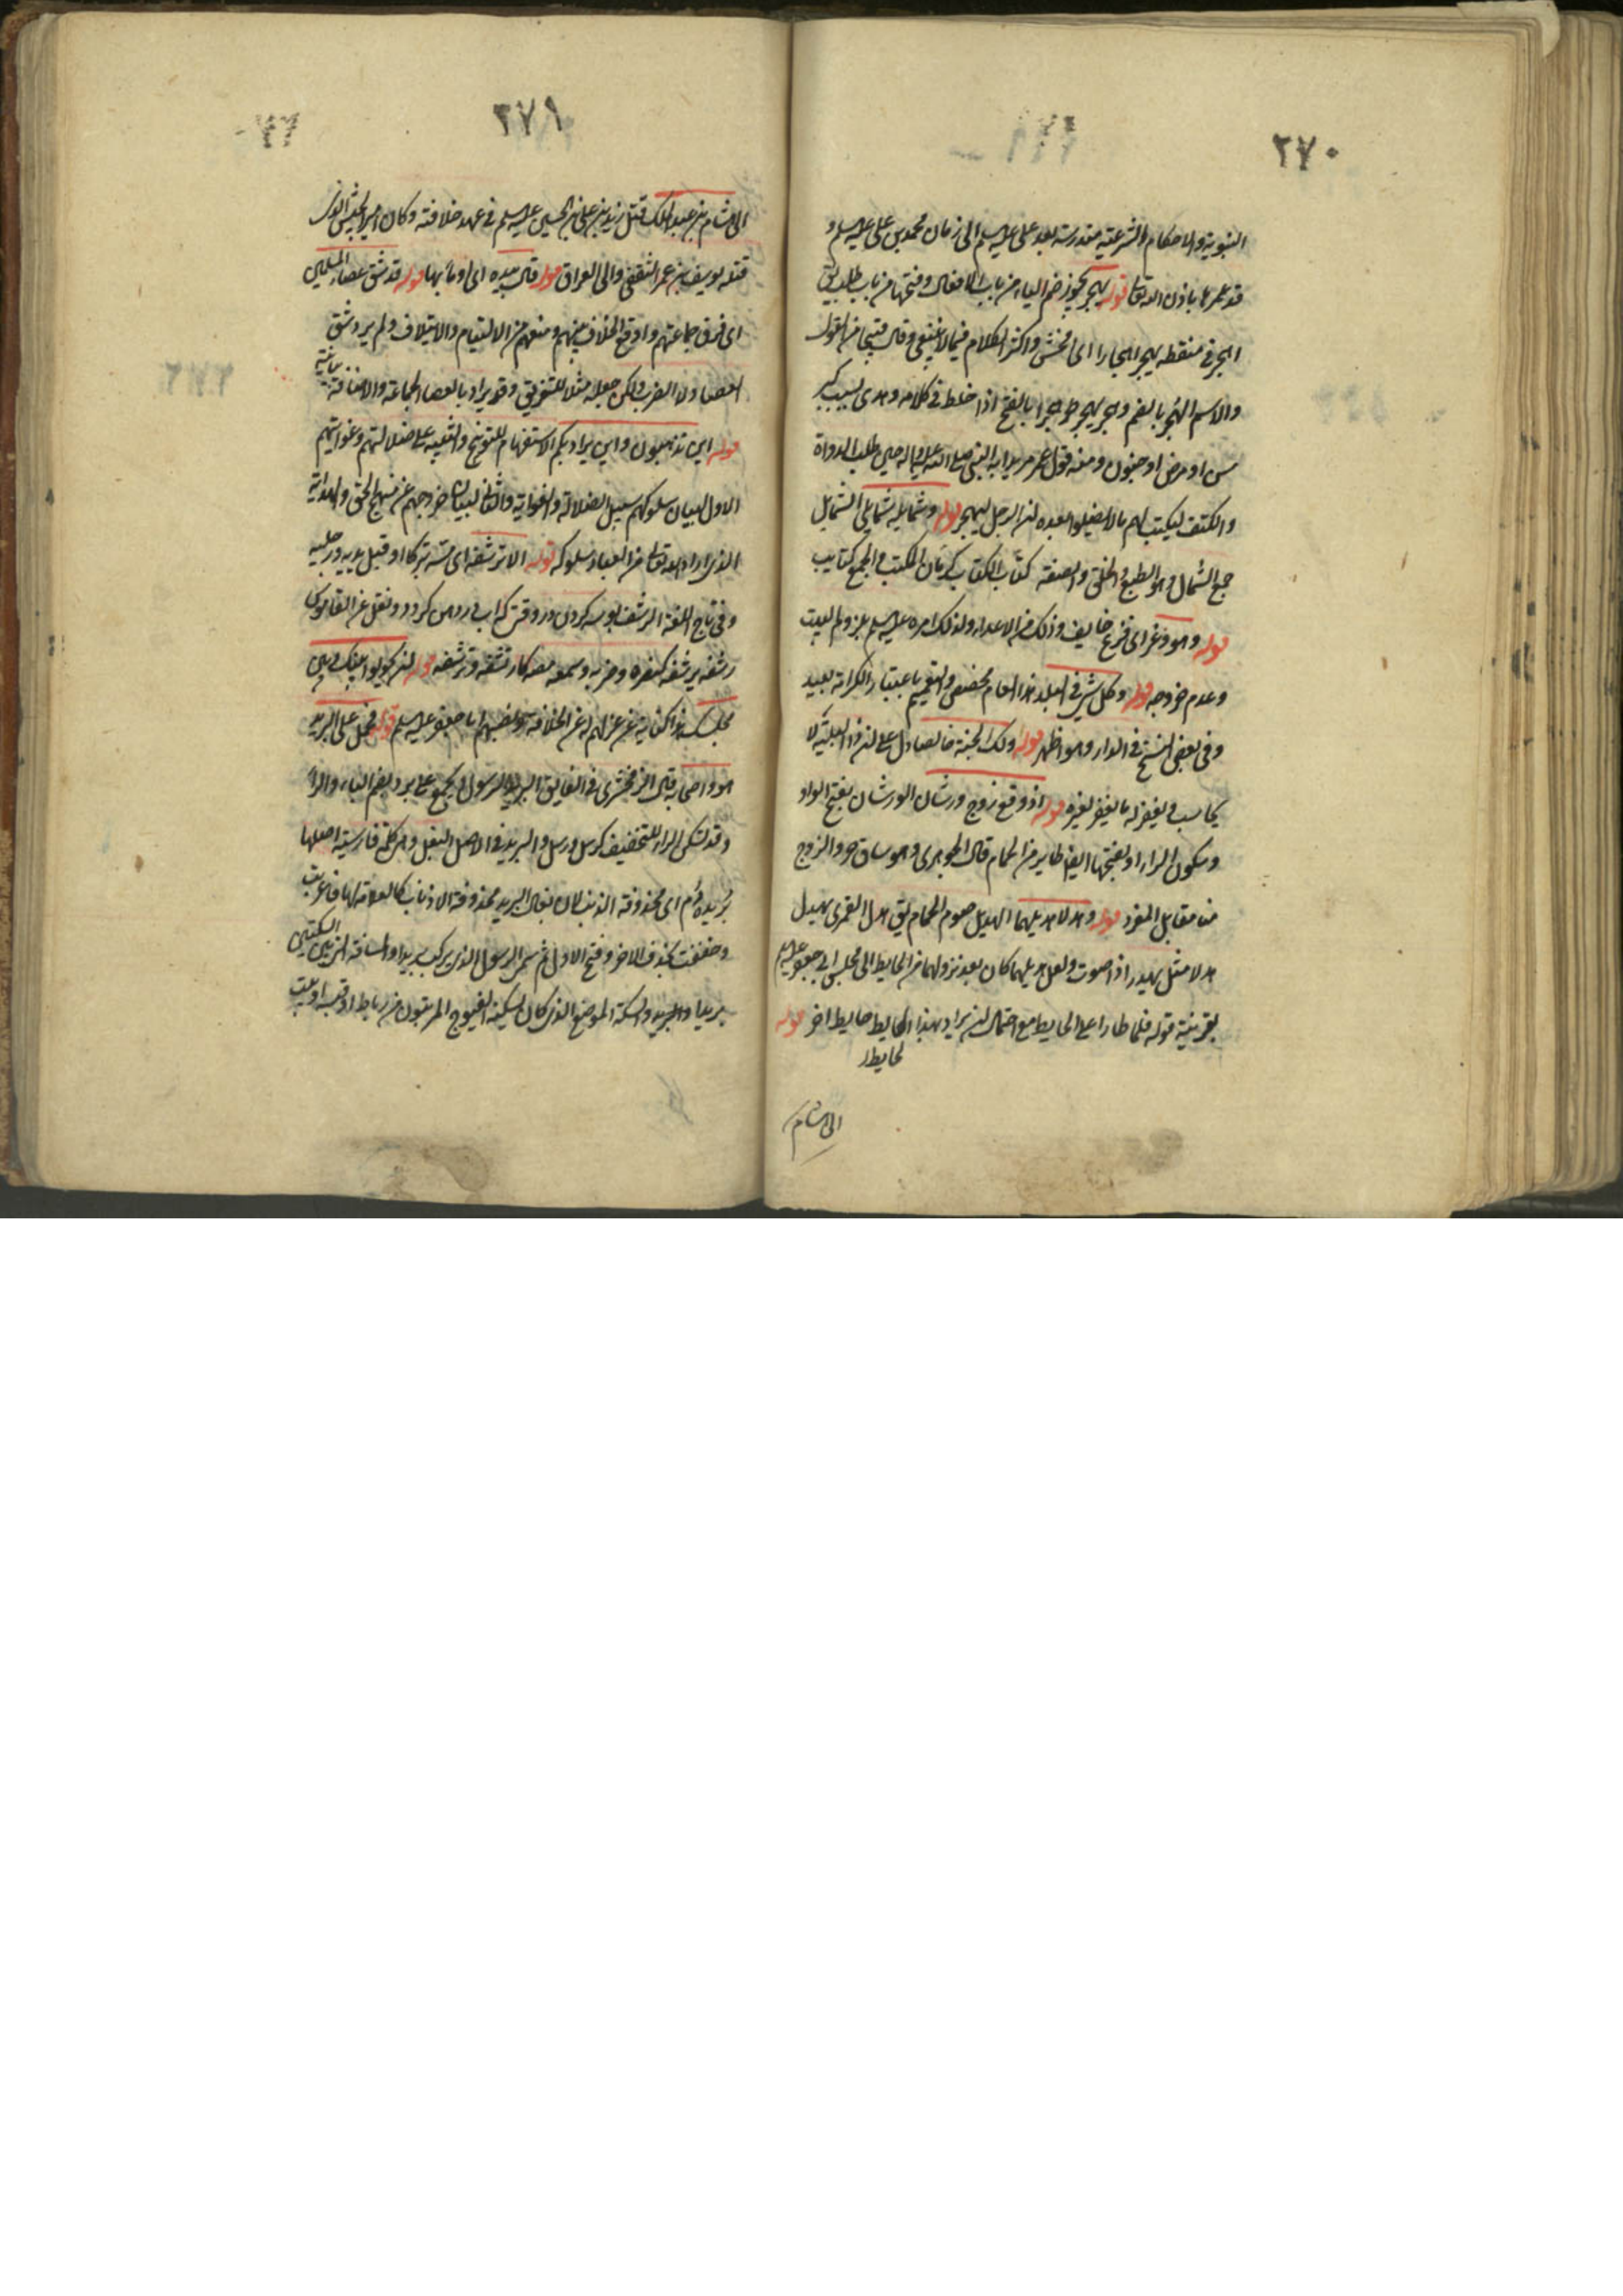 ٢٧٠
النبوية والاحكام الشرعية مندرسة بعد على عليه السلم الى زمان محمد بن على عليه السلم و
قد علمها باذن الله تعالى قوله يهجر يجوز ضم الياء من باب الافعال وفتحها من باب طلب يق
اهجر في منطقه يهجر اهجارا اى افحش واكثر الكلام فيما لا ينبغى وقال قبيحا من القول
والاسم الهجر بالضم وهجر يهجر هجرا بالفتح اذا خلط في كلامه وهذى بسبب كبر
سن او مرض او جنون ومنه قول عمر مريدا به النبى صلى الله عليه واله حين طلب الدواة
والكتف ليكتب لهم ما لا يضلوا بعده ان الرجل ليهجر قوله وشمايله شمايلى الشمايل
جمع الشمال وهو الطبع والخلق والصفة كتاب الكتاب كرمان المكتب والجمع كتاتيب
قوله وهو ذعر اى فزع خايف وذلك من الاعداء ولذلك امره عليه السلم بلزوم البيت
وعدم خروجه قوله وكل شىء في البلد هذا العام مخصص والتعميم باعتبار الكرامة بعيد
وفي بعض النسخ في الدار وهو اظهر قوله ولك الجنة خالصا دل على ان ذا البلية لا
يحاسب ويغفر له ما يغفر لغيره قوله اذ وقع زوج ورشان الورشان بفتح الواو
وسكون الراء او بفتحها ايضا طاير من الحمام قال الجوهرى وهو ساق حر والزوج
هنا مقابل الفرد قوله وهدلا هديلهما الهديل صوت الحمام يق هدل القمرى يهدل
هدلا مثل يهدر اذا صوت ولعل هديلهما كان بعد نزولهما من الحايط الى مجلس ابى جعفر عليه السلم
بقرينة قوله فلما طارا على الحايط مع احتمال ان يراد بهذا الحايط حايط اخر قوله
الى هشام
٢٧١
الى هشام بن عبد الملك قتل زيد بن على بن الحسين عليه السلم في عهد خلافته وكان امير الجيش الذى
قتله يوسف بن عمر الثقفى والى العراق قوله قال بيده اى اومأ بها قوله قد شق عصا المسلمين
اى فرق جماعتهم واوقع الخلاف بينهم ومنعهم من الالتيام والايتلاف ولم يرد شق
العصا ولا الضرب ولكن جعله مثلا للتفريق وقد يراد بالعصا الجماعة والاضافة بيانية
قوله اين تذهبون واين يراد بكم الاستفهام للتوبيخ والتنبيه على ضلالتهم وغوايتهم
الاول لبيان سلوكهم سبيل الضلالة والغواية والثانى لبيان خروجهم عن منهج الحق والهداية
الذى اراد الله تعالى من العباد سلوكه قوله الا ترشفه اى مسه تبركا او قبل يديه ورجليه
وفي تاج اللغة الرشف بوسه كردن در وقتى كه آب در دهن كردد ونقل عن القاموس
رشفه يرشفه كنصره وضربه وسمعه مصه كارتشفه وترشفه قوله ان يحولوا بينك وبين
مجلسك هذا كناية عن عزلهم له عن الخلافة ونصبهم ابا جعفر عليه السلم قوله فحمل على البريد
هو واصحابه قال الزمخشرى في الفايق البريد الرسول ويجمع على برد بضم الباء والراء
وقد تسكن الراء للتخفيف كرسل ورسل والبريد في الاصل البغل وهى كلمة فارسية اصلها
بريده دم اى محذوفة الذنب لان بغال البريد محذوفة الاذناب كالعلامة لها فاعربت
وخففت بحذف الاخر وفتح الاول ثم سمى الرسول الذى يركبه بريدا والمسافة التى بين السكتين
بريدا والبريد والسكة الموضع الذى كان يسكنه الفيوج المرتبون من رباط او قبة او بيت